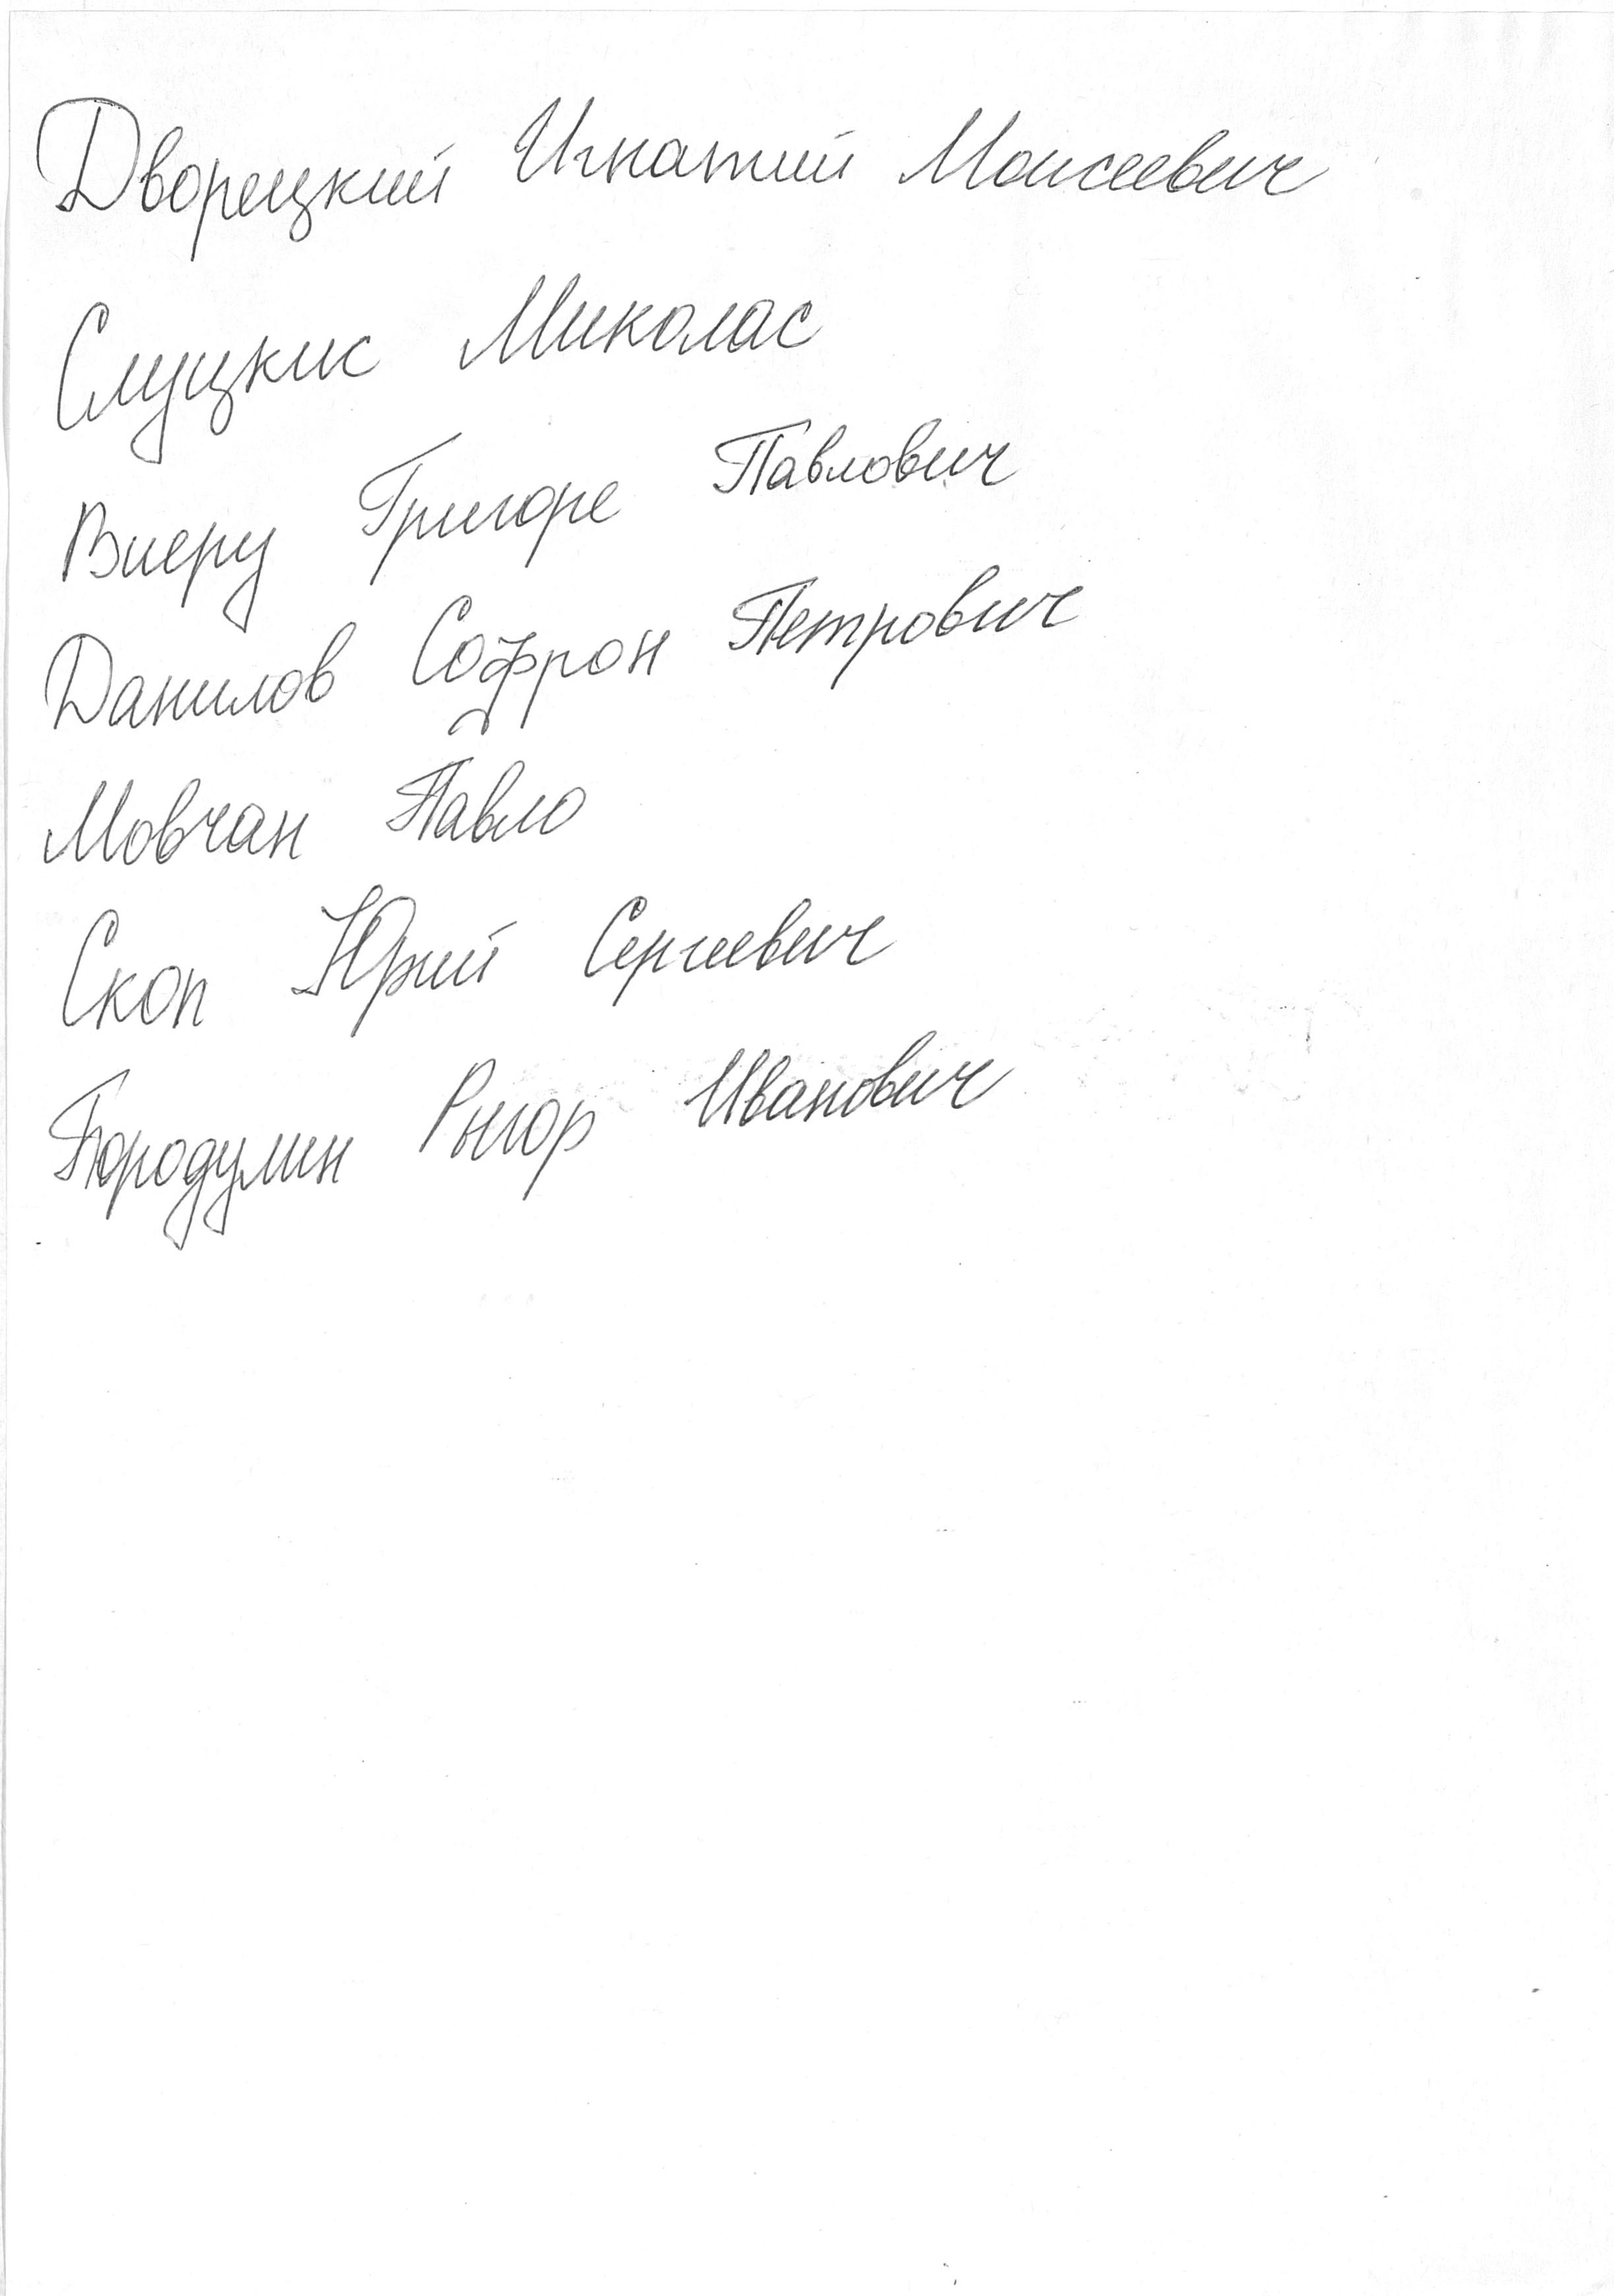 Дворецкий Игнатий Моисеевич
Слуцкис Миколас
Виеру Григоре Павлович
Данилов Софрон Петрович
Мовчан Павло
Скоп Юрий Сергеевич
Бородулин Рыгор Иванович